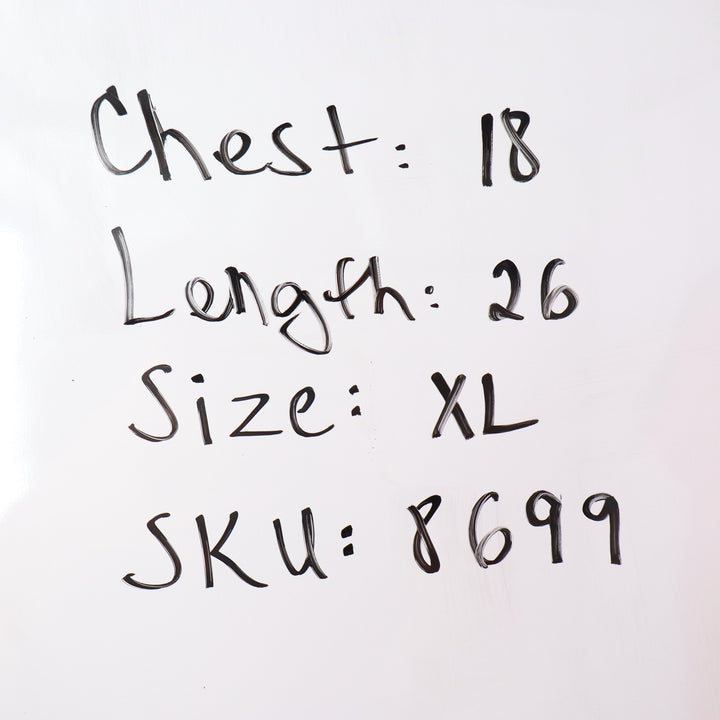 Chest: 18
Length: 26
Size: XL
SKU: 8699